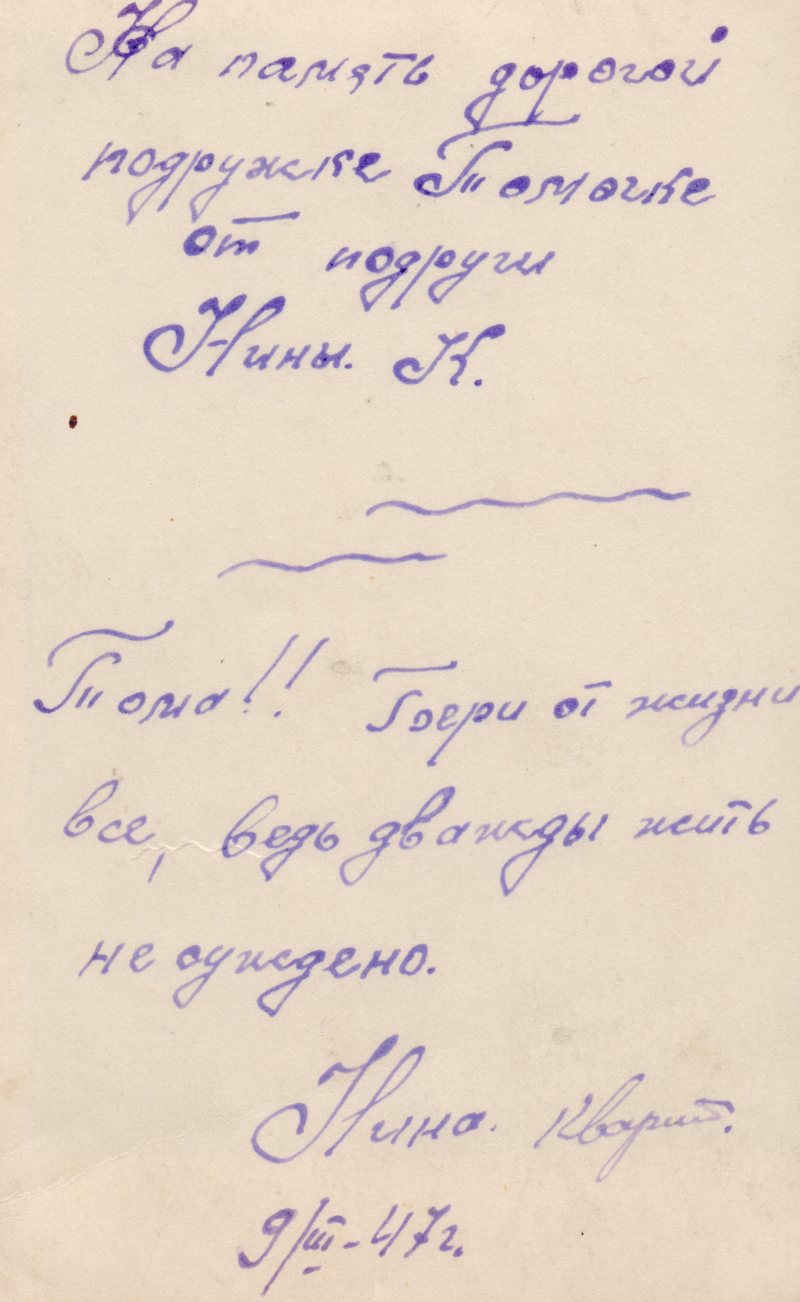 На память дорогой
подружке Томочке
от подруги
Нины. К.
Тома!! Бери от жизни
все, ведь дважды жить
не суждено.
Нина.
9/III-47г.